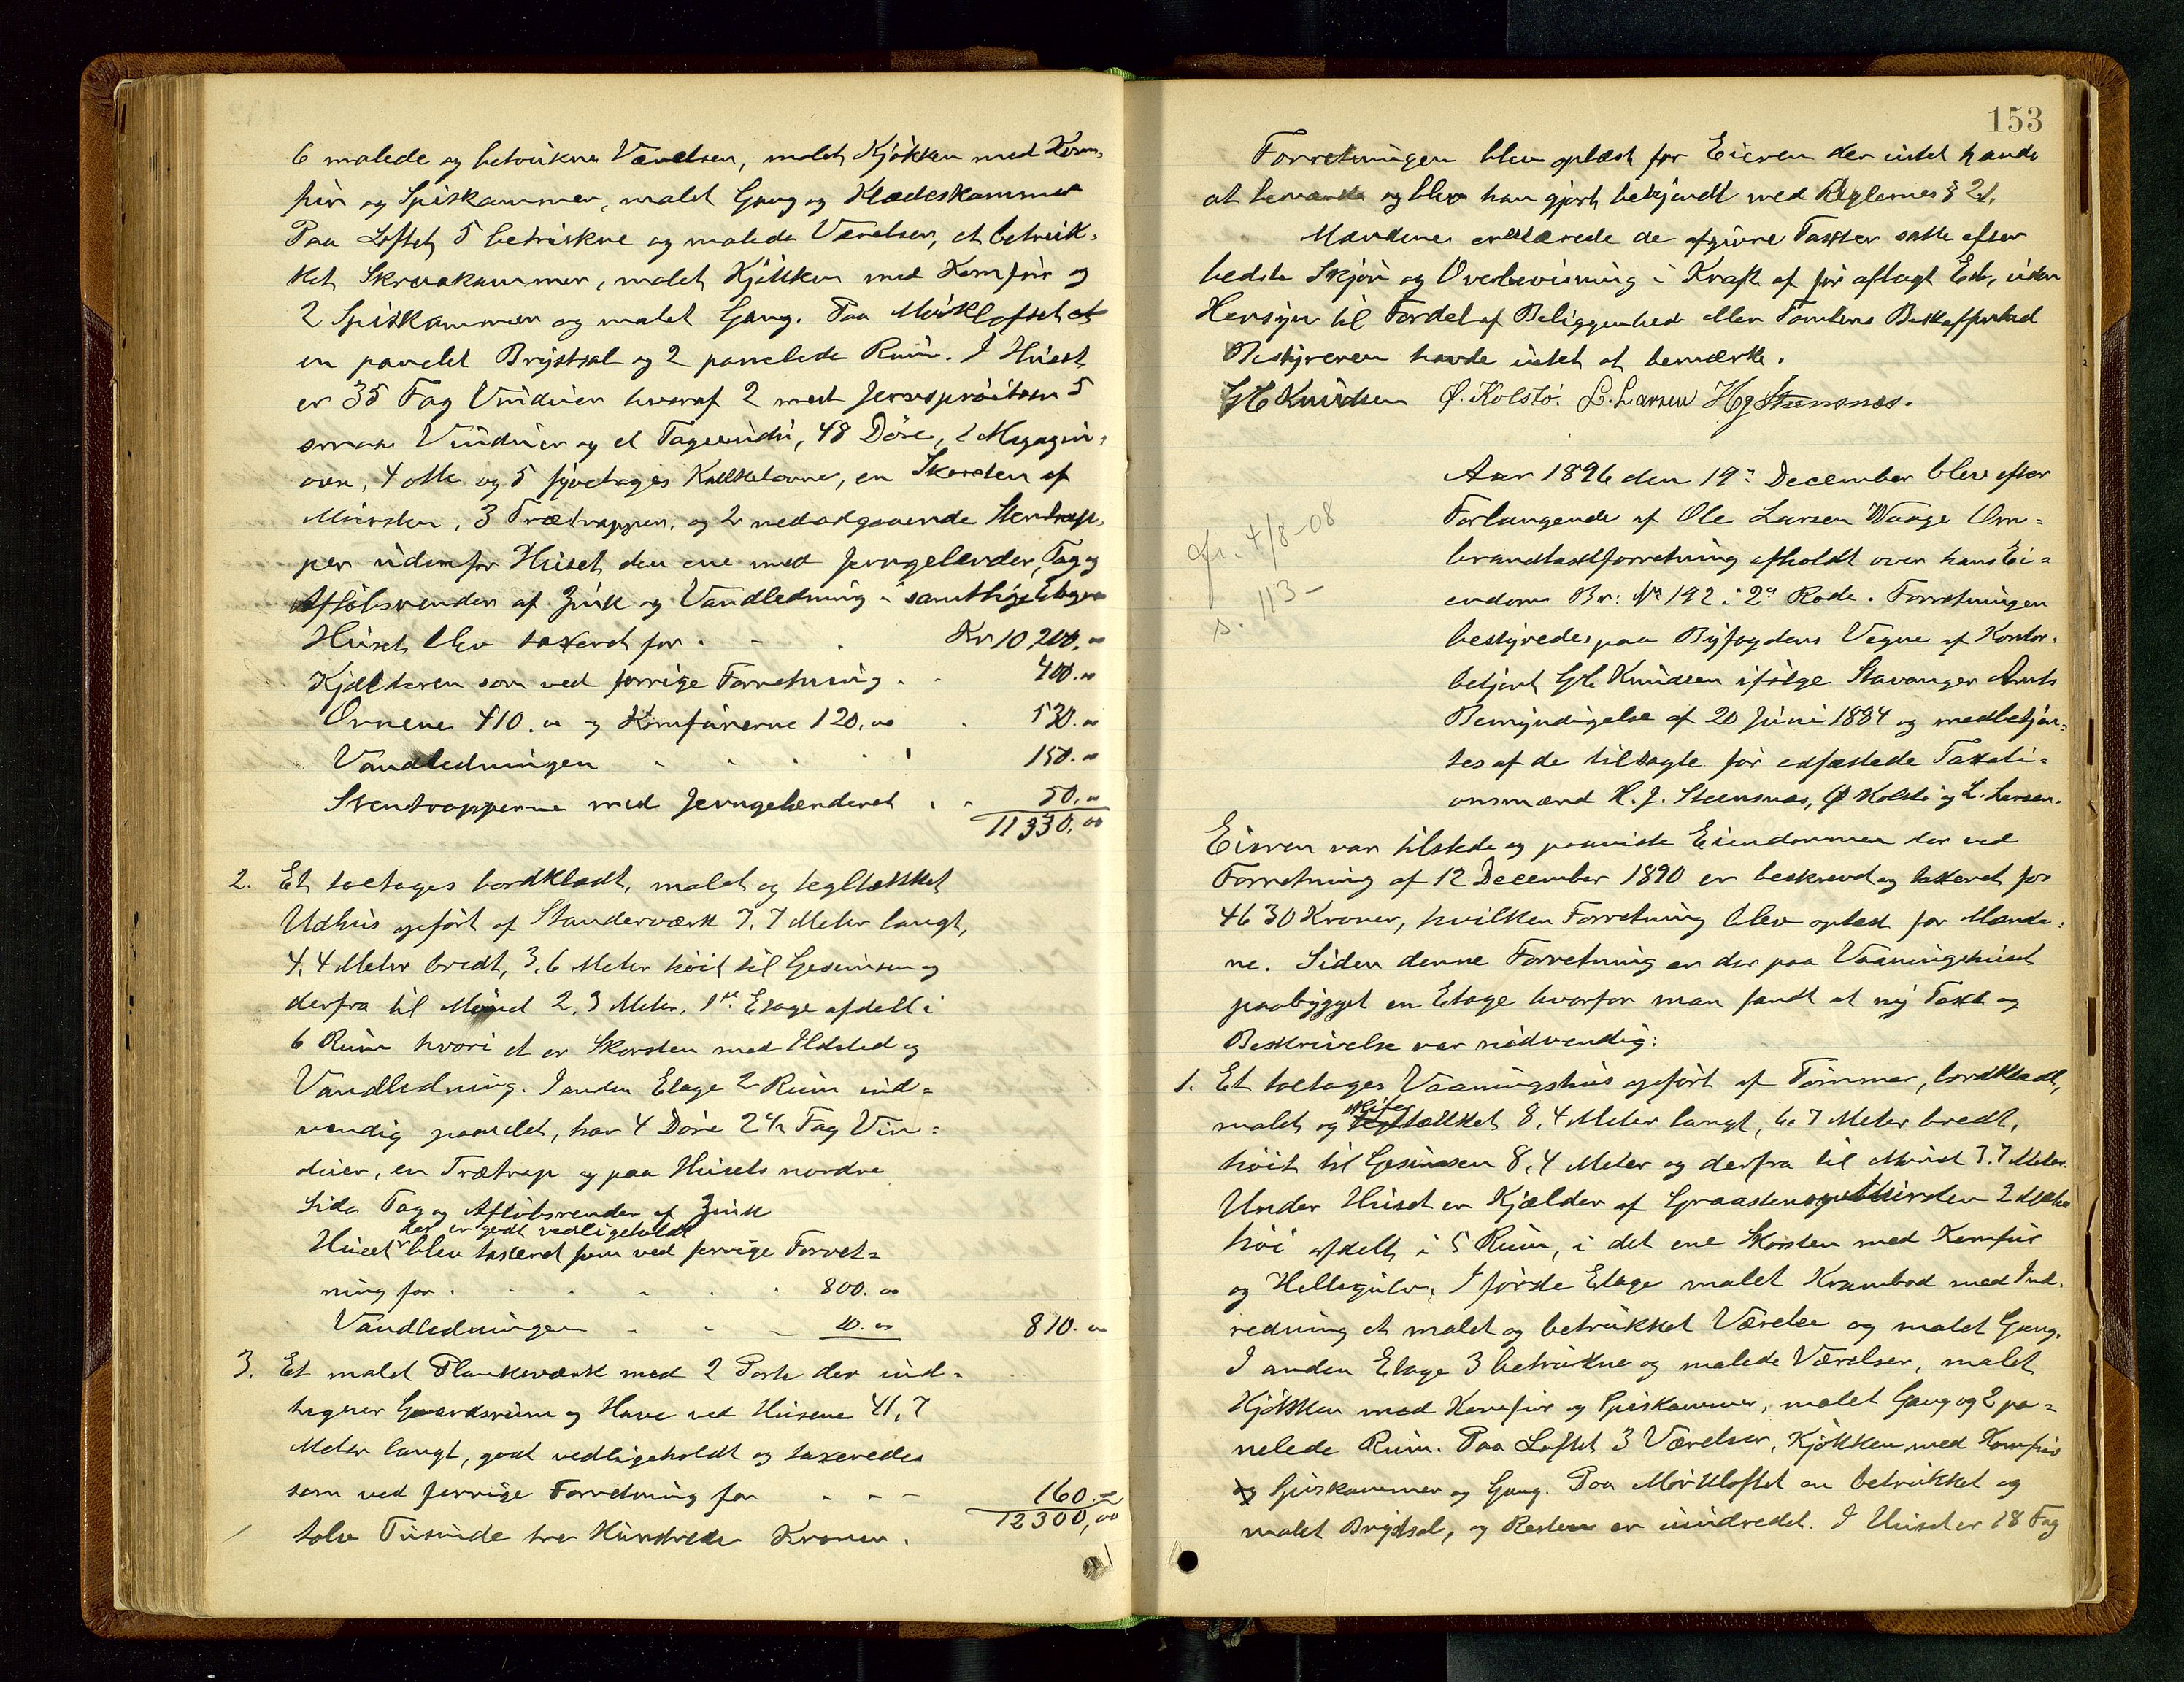 6 malede og betrukne Værelser, malet Kjøkken med Kom-
fur og Spiskammer, malet Gang og Klædeskammer
Paa Loftet 5 betrukne og malede Værelser, et betruk-
ket Skraakammer, malet Kjøkken med Komfur og
2 Spiskammer og malet Gang. Paa Mørkloftet et
en panelet Brystsal og 2 panelede Rum. I Huset
er 35 Fag Vinduer hvoraf 2 med Jernsprøitser 5
smaa Vinduer og et Tagvindu, 48 Døre, 2 Magasin-
ovn, 4 otte og 5 syvetages Kakkelovne, en Skorsten af
Mursten, 3 Trætrapper, og 2 nedadgaaende Stentrap-
per udenfor Huset den ene med Jerngelender, Tag og
Afløbsrender af Zink og Vandledning i samtlige Etager
Huset blev taxeret for . . . Kr 10,200.00
Kjælderen som ved forrige Forretning . . 400.00
Ovnene 410.00 og Komfurerne 120.00 . 530.00
Vandledningen . . . . . 150.00
Stentrapperne med Jerngelenderet . . 50.00
11330,00
2. Et toetages bordklædt, malet og tegltækket
Udhus opført af Standerværk 7.7 Meter langt,
4.4 Meter bredt, 3.6 Meter høit til Gesimsen og
derfra til Mønet 2.3 Meter. 1ste Etage afdelt i
6 Rum hvori et er Skorsten med Ildsted og
Vandledning. I anden Etage 2 Rum ind-
vendig panelet, har 4 Døre 2 1/2 Fag Vin-
duer, en Trætrap og paa Husets nordre
Side Tag og Afløbsrender af Zink
der er godt vedligeholdt
Huset blev taxeret som ved forrige Forret-
ning for . . . . . . 800.00
Vandledningen . . . 10.00 810.00
3. Et malet Plankeværk med 2 Porte der ind-
tager Gaardsrum og Have ved Husene 41,7
Meter langt, godt vedligeholdt og taxeredes
som ved forrige Forretning for . . . 160.00
12300,00
tolv Tusinde tre Hundrede Kroner.
153
Forretningen blev oplæst for Eieren der intet havde
at bemærke og blev han gjort bekjendt med Reglernes § 21.
Mændene erklærede de afgivne Taxter satte efter
bedste Skjøn og Overbevisning i Kraft af før aflagt Ed, uden
Hensyn til Fordel af Beliggenhed eller Tomtens Beskaffenhed
Bestyreren havde intet at bemærke.
GH Knudsen Ø. Kolstø. L. Larsen HJ Steensnæs.
Aar 1896 den 19de December blev efter
Forlangende af Ole Larsen Waage Om-
brandtaxtforretning afholdt over hans Ei-
endom Br: No 192 i 2en Rode. Forretningen
bestyredes paa Byfogdens Vegne af Kontor-
betjent GH Knudsen ifølge Stavanger Amts
Bemyndigelse af 20 Juni 1884 og medbetjen-
tes af de tilsagte før edfæstede Taxati-
onsmænd H. J. Steensnæs, Ø Kolstø og L. Larsen.
cfr. 4/8-08
s. 113-
Eieren var tilstede og paaviste Eiendommen der ved
Forretning af 12 December 1890 er beskrevet og taxeret for
4630 Kroner, hvilken Forretning blev oplæst for Mænde-
ne. Siden denne Forretning er der paa Vaaningshuset
paabygget en Etage hvorfor man fandt at ny Taxt og
Beskrivelse var nødvendig:
1. Et toetages Vaaningshus opført af Tømmer, bordklædt,
skifer
malet og tegltækket 8,4 Meter langt, 6.7 Meter bredt,
høit til Gesimsen 8,4 Meter og derfra til Mønet 3.7 Meter.
Under Huset er Kjælder af Graasten og Mursten 2 Meter
høi afdelt i 5 Rum, i det ene Skorsten med Komfur
og Hellegulv. I første Etage malet Krambod med Ind-
redning et malet og betrukket Værelse og malet Gang.
I anden Etage 3 betrukne og malede Værelser, malet
Kjøkken med Komfur og Spiskammer, malet Gang og 2 pa-
nelede Rum. Paa Loftet 3 Værelser, Kjøkken med Komfur
og Spiskammer og Gang. Paa Mørkloftet en betrukket og
malet Brystsal, og Resten er uindredet. I Huset er 18 Fag